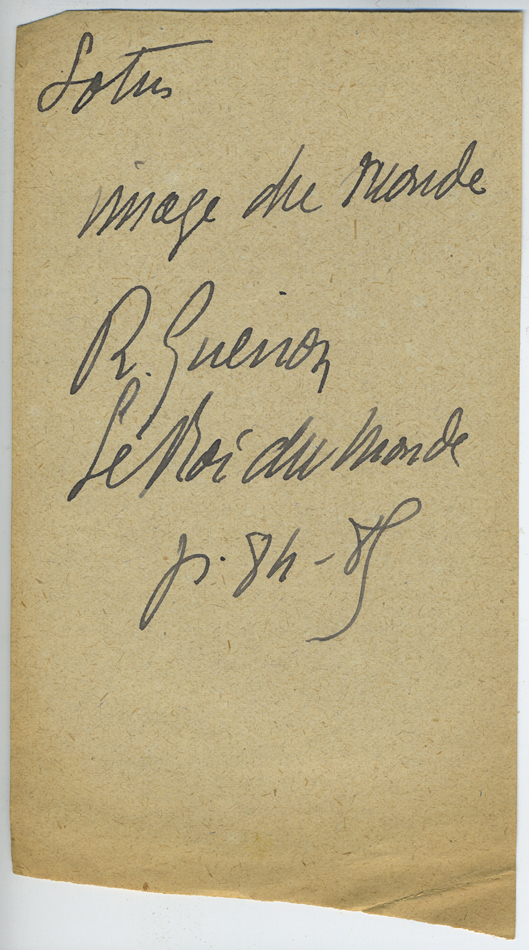 Lotus
image du monde
R. Guenon
Le Roi du Monde
p. 84-85